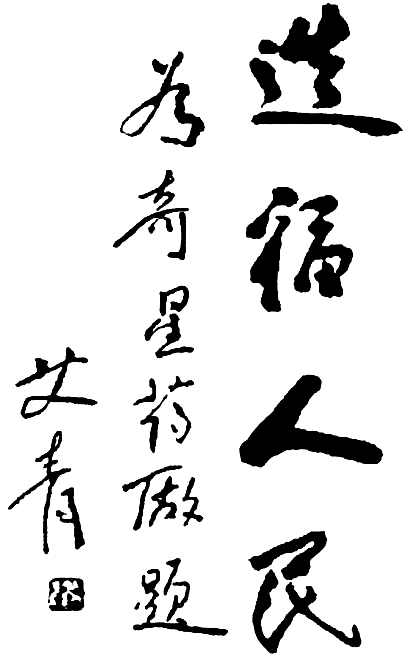 造福人民
为奇星药厰题
艾青